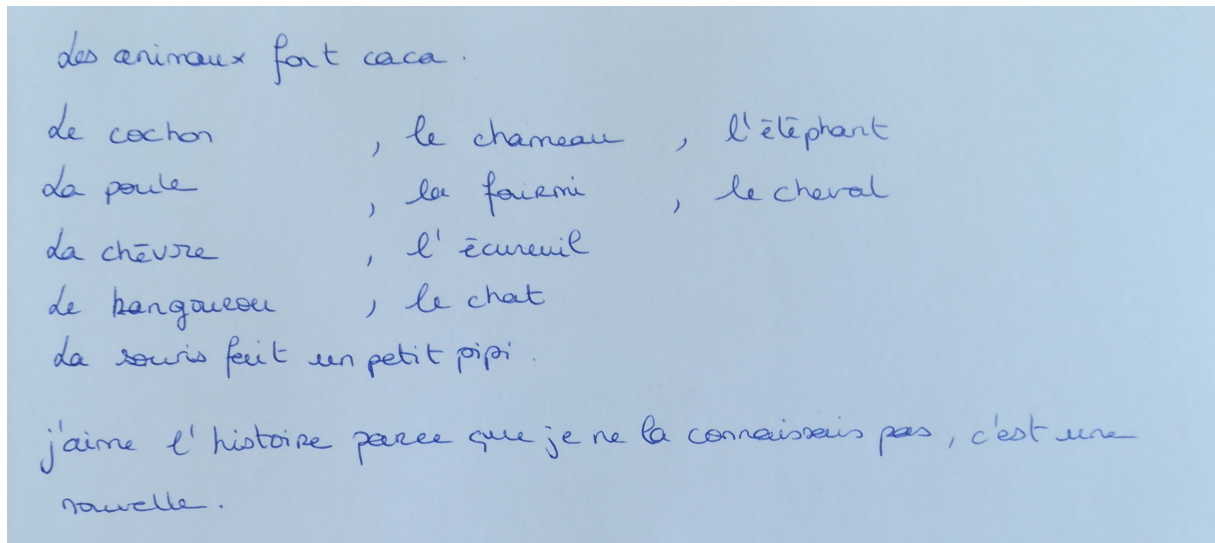 Les animaux font caca.
Le cochon , le chameau , l'éléphant
La poule , la fourmi , le cheval
La chèvre , l'écureuil
Le kangourou , le chat
La souris fait un petit pipi.
j'aime l'histoire parce que je ne la connaissais pas, c'est une
nouvelle.